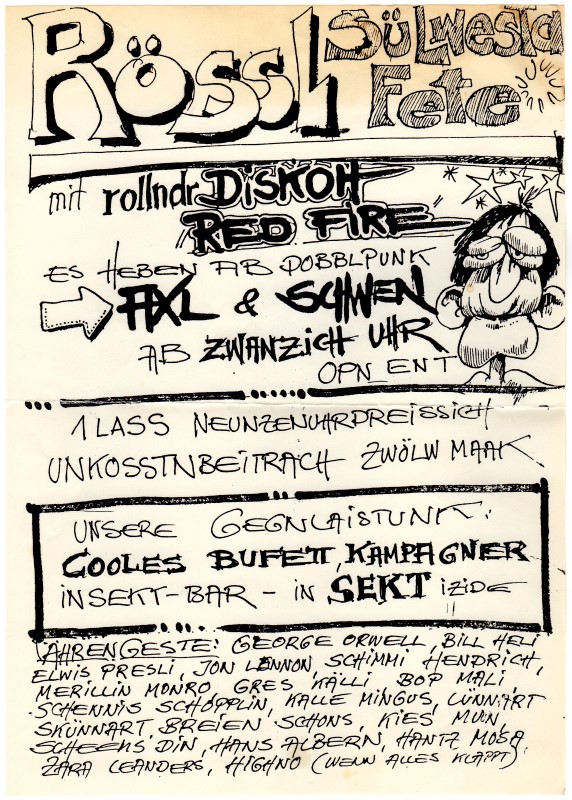 Rössl SÜLWESTA
Fete
mit rollndr DISKOH
RED FIRE
ES HEBEN AB DOBBLPUNK
AXL & SCHWEN
AB ZWANZICH UHR
OPN ENT
1LASS NEUNZENUHRDREISSICH
UNKOSSTNBEITRACH ZWÖLW MAAK
UNSERE GEGNLAISTUNK:
COOLES BUFETT, KAMPAGNER
INSEKT-BAR - IN SEKT IZIDE !!
AHRENGESTE: GEORGE ORWELL, BILL HELI
ELWIS PRESLI, JON LENNON, SCHIMMI HENDRICH,
MERILLIN MONRO, GRES KÄLLI BOP MALI,
SCHENNIS SCHOPPLIN, KALLE MINGUS, LÜNNART
SKÜNNART, BREIEN SCHONS, KIES MUN,
SCHEEMS DIN, HANS ALBERN, HANTZ MOSA
ZARA LEANDERS, HIGHNO (WENN ALLES KLAPPT)